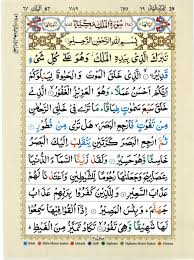 سُوْرَةُ الْمُلْكِ مَكِّيَّةٌ
بِسْمِ اللهِ الرَّحْمٰنِ الرَّحِيْمِ
تَبٰرَكَ الَّذِيْ بِيَدِهِ الْمُلْكُ وَهُوَ عَلٰى كُلِّ شَيْءٍ
قَدِيْرُ الَّذِيْ خَلَقَ الْمَوْتَ وَالْحَيٰوةَ لِيَبْلُوَكُمْ
اَيُّكُمْ اَحْسَنُ عَمَلًا وَهُوَ الْعَزِيْزُ الْغَفُوْرُ الَّذِيْ
خَلَقَ سَبْعَ سَمٰوٰتٍ طِبَاقًا مَا تَرٰى فِيْ خَلْقِ الرَّحْمٰنِ
مِنْ تَفٰوُتٍ فَارْجِعِ الْبَصَرَ هَلْ تَرٰى مِنْ
فُطُوْرٍ ثُمَّ ارْجِعِ الْبَصَرَ كَرَّتَيْنِ يَنْقَلِبْ اِلَيْكَ
الْبَصَرُ خَاسِئًا وَهُوَ حَسِيْرٌ وَلَقَدْ زَيَّنَّا السَّمَآءَ
الدُّنْيَا بِمَصَابِيْحَ وَجَعَلْنٰهَا رُجُوْمًا لِّلشَّيٰطِيْنِ وَاَعْتَدْنَا لَهُمْ عَذَابَ
السَّعِيْرِ وَلِلَّذِيْنَ كَفَرُوْا بِرَبِّهِمْ عَذَابُ
جَهَنَّمَ وَبِئْسَ الْمَصِيْرُ اِذَآ اُلْقُوْا فِيْهَا سَمِعُوْا